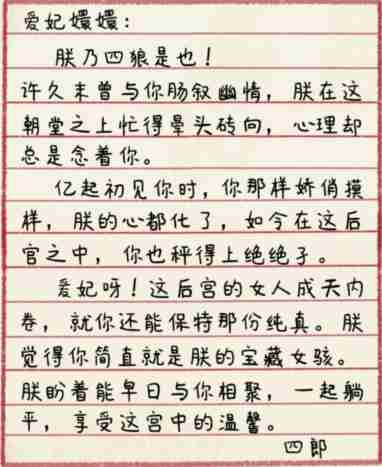 爱妃嬛嬛：
朕乃四狼是也！
许久末曾与你肠叙幽情，朕在这
朝堂之上忙得晕头砖向，心理却
总是念着你。
亿起初见你时，你那样娇俏摸
样，朕的心都化了，如今在这后
宫之中，你也秤得上绝绝子。
爱妃呀！这后宫的女人成天内
卷，就你还能保特那份纯真。朕
觉得你简直就是朕的宝藏女骇。
朕盼着能早日与你相聚，一起躺
平，享受这宫中的温馨。
四郎